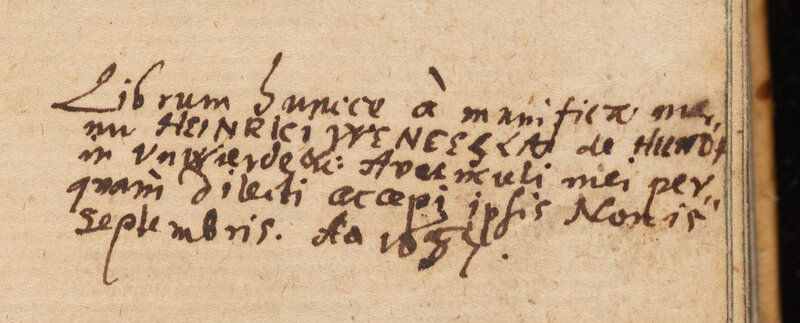 Librum huncce à munifica ma„
nu HEINRICI WENCESLAI de HUNDT
in Unwerde &c: Avunculi mei per„
quàm dilecti accepi ipsis Nonis
Septembris. Ao